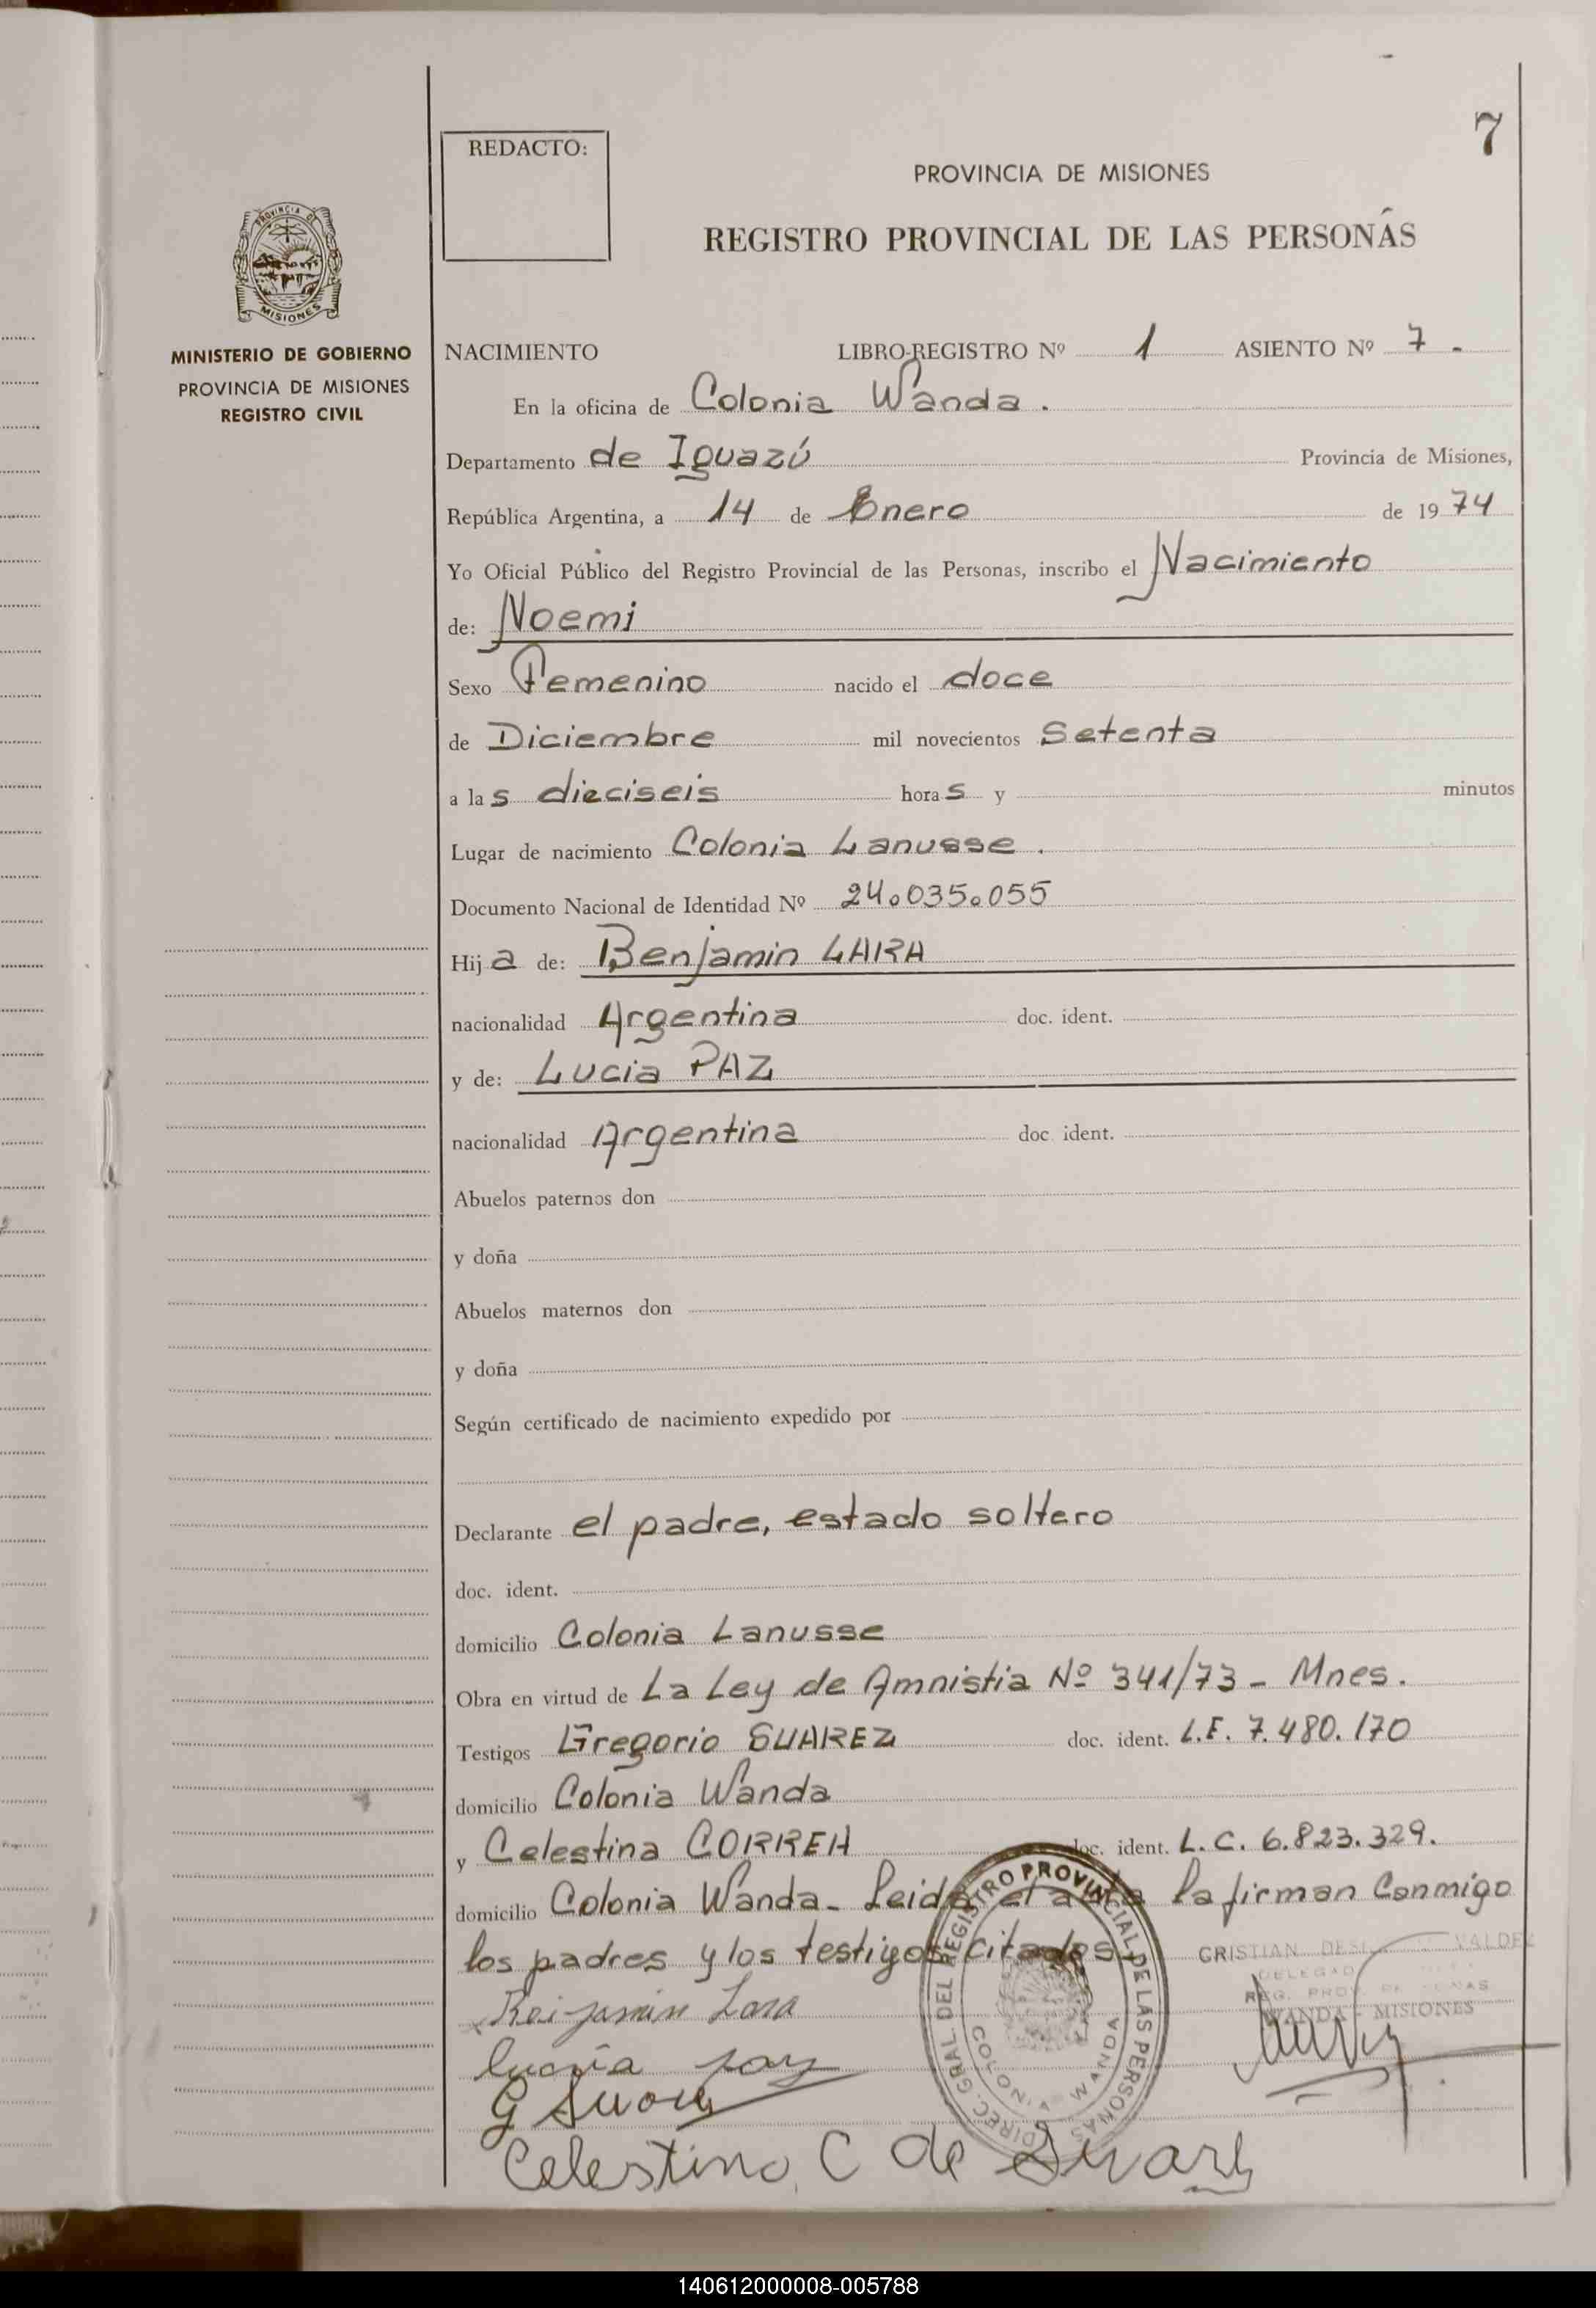 7
REDACTO:
PROVINCIA DE MISIONES
REGISTRO PROVINCIAL DE LAS PERSONAS
PROVINCIA DE
MISIONES
MINISTERIO DE GOBIERNO
PROVINCIA DE MISIONES
REGISTRO CIVIL
NACIMIENTO LIBRO-REGISTRO Nº 1 ASIENTO Nº 7.
En la oficina de Colonia Wanda.
Departamento de Iguazú Provincia de Misiones,
República Argentina, a 14 de Enero de 1974
Yo Oficial Público del Registro Provincial de las Personas, inscribo el Nacimiento
de: Noemi
Sexo Femenino nacido el doce
de Diciembre mil novecientos Setenta
a las dieciseis horas y minutos
Lugar de nacimiento Colonia Lanusse.
Documento Nacional de Identidad Nº 24.035.055
Hija de: Benjamin LARA
nacionalidad Argentina doc. ident.
y de: Lucia PAZ
nacionalidad Argentina doc. ident.
Abuelos paternos don
y doña
Abuelos maternos don
y doña
Según certificado de nacimiento expedido por
Declarante el padre, estado soltero
doc. ident.
domicilio Colonia Lanusse
Obra en virtud de La Ley de Amnistia Nº 341/73 - Mnes.
Testigos Gregorio SUAREZ doc. ident. L.E. 7.480.170
domicilio Colonia Wanda
y Celestina CORREA doc. ident. L.C. 6.823.329.
domicilio Colonia Wanda - Leida el acta la firman Conmigo
los padres y los testigos citados.
DIREC. GRAL DEL REGISTRO PROVINCIAL DE LAS PERSONAS
COLONIA WANDA
CRISTIAN VALDEZ
WANDA - MISIONES
Benjamin Lara
Lucia Paz
G Suarez
Celestina C de Suarez
140612000008-005788